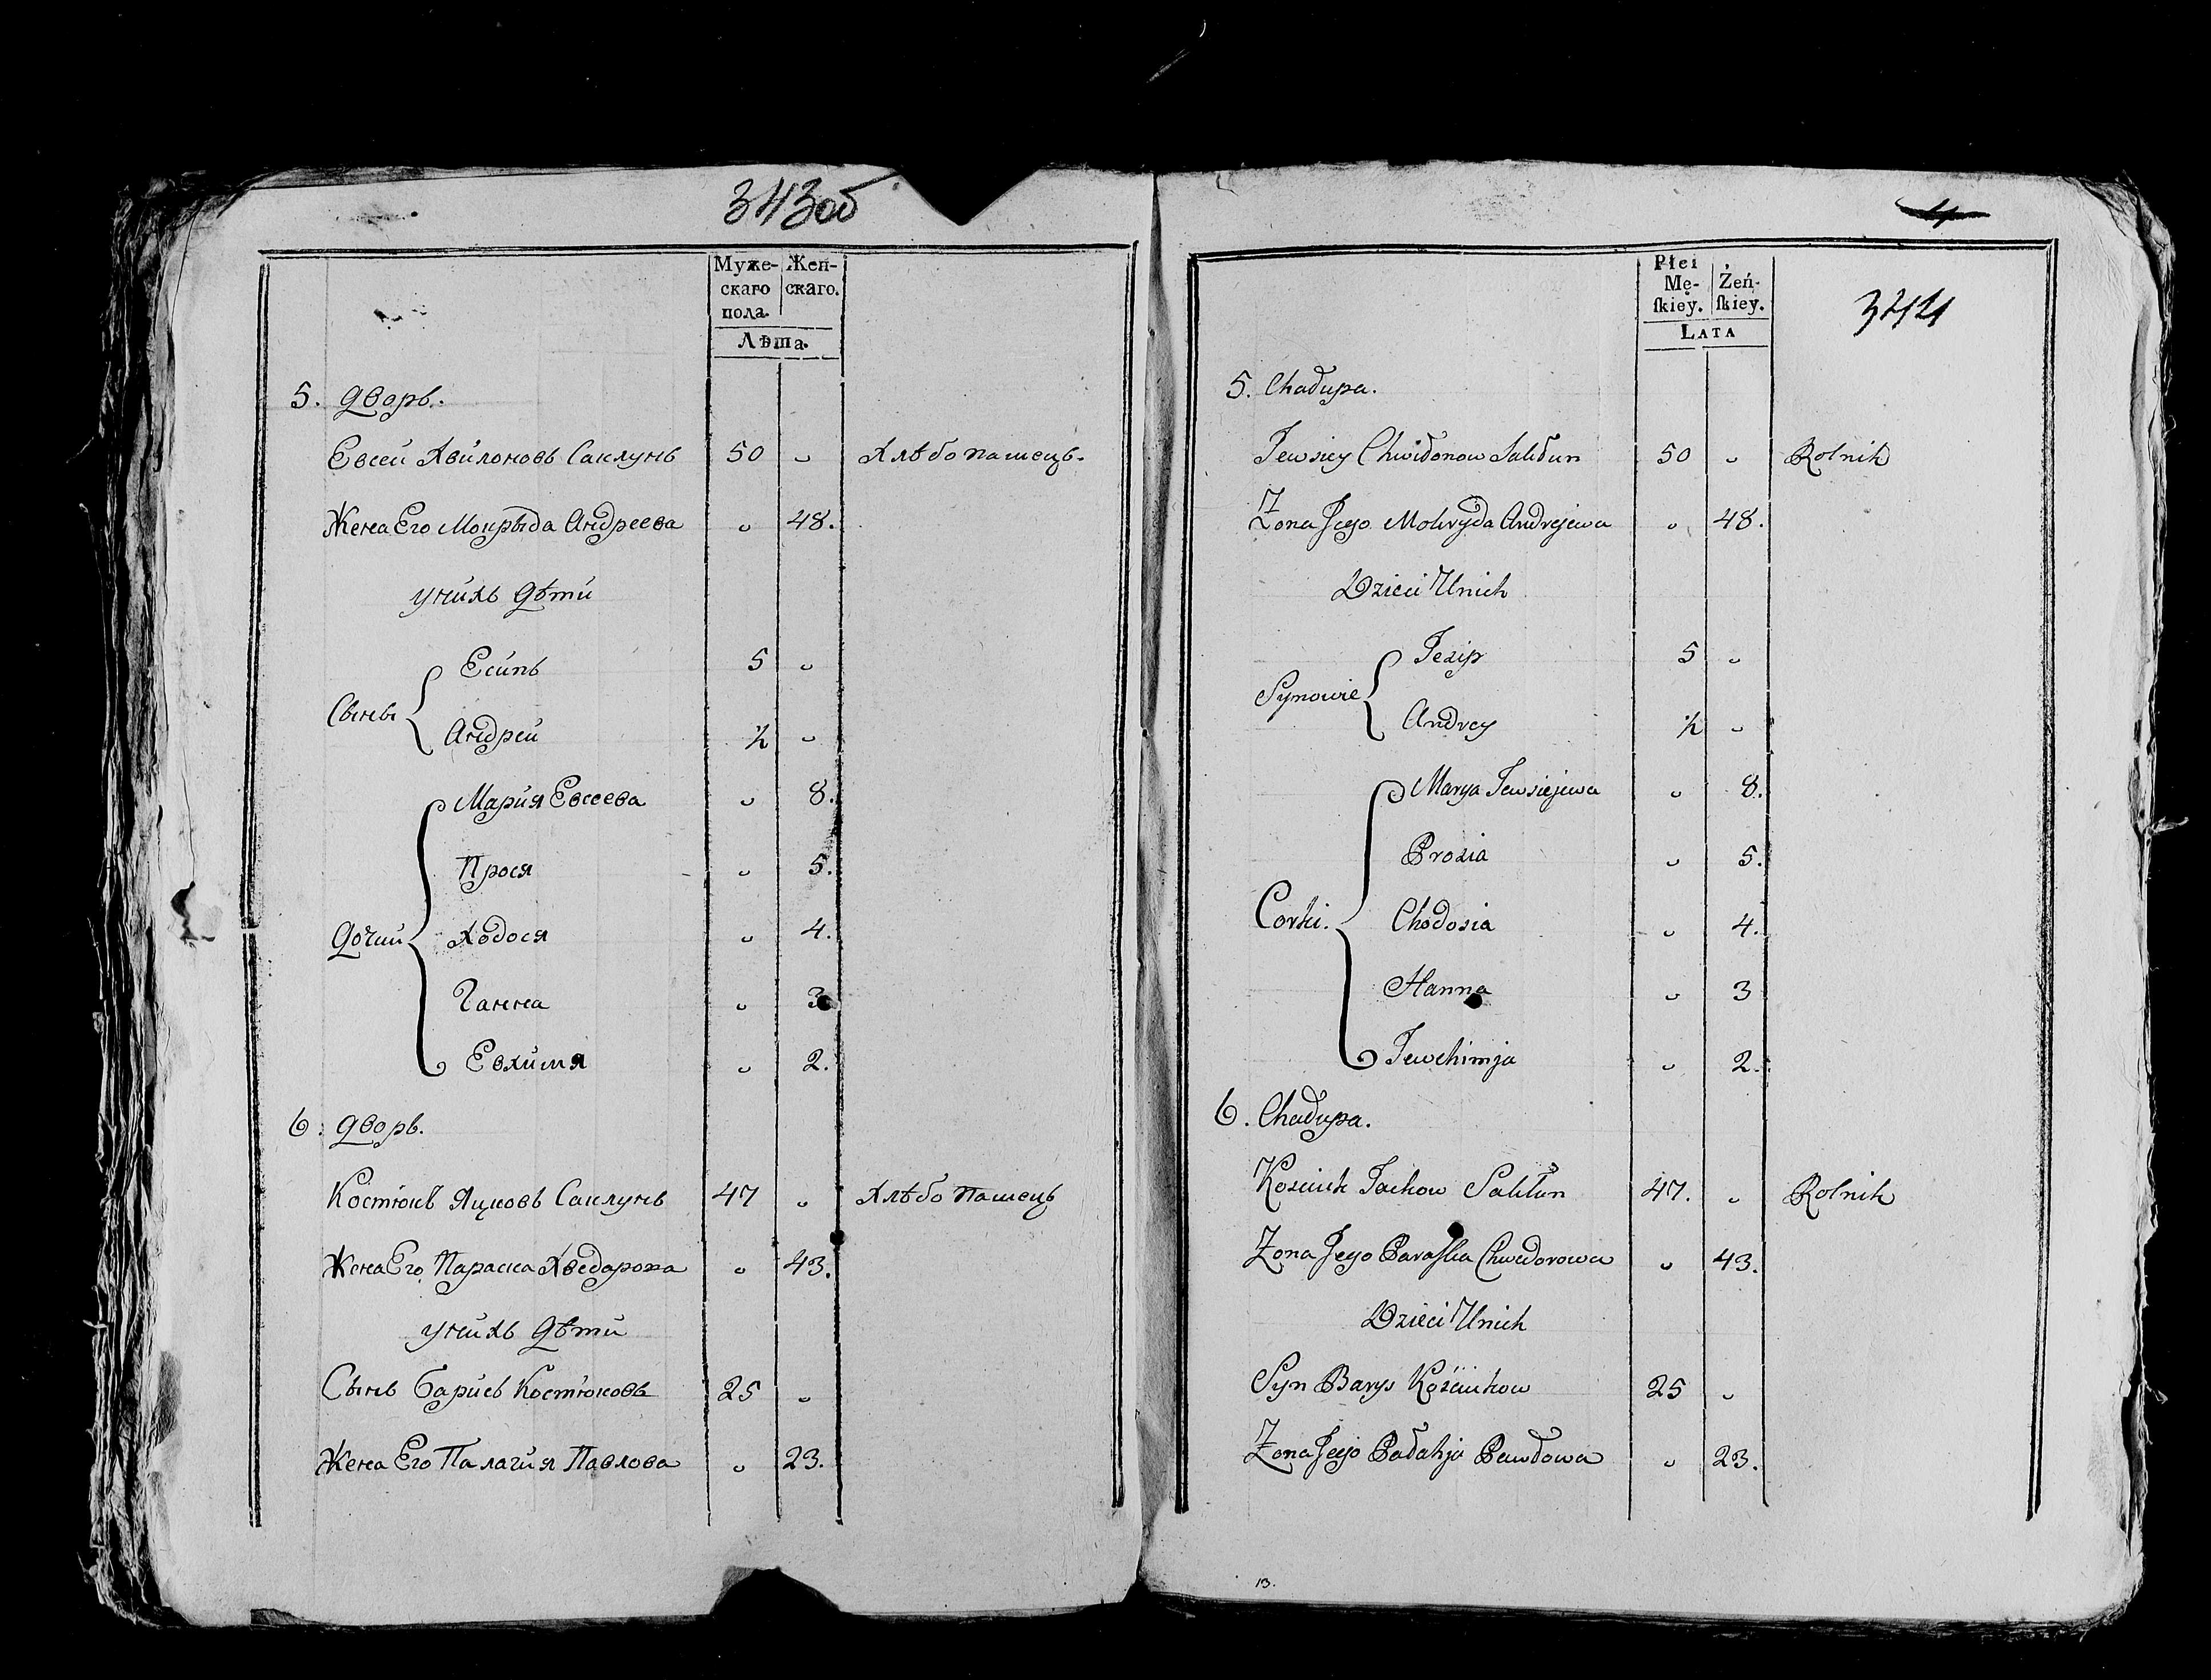 343об
Муже- Жен-
скаго скаго.
пола.
Лѣта.
5. дворъ.
Евсей Хвилоновъ Саклунъ 50 " Хлѣбопашецъ.
Жена Его Мокрыда Андреева " 48.
У нихъ дѣти
Есипъ 5 "
Сыны
Андрей ½ "
Мария Евсеева " 8.
Прося " 5.
Дочии Ходося " 4.
Ганна " 3
Евхимя " 2.
6. дворъ.
Костюкъ Яцковъ Саклунъ 47 " Хлѣбопашецъ
Жена Его Параска Хведарова " 43.
У нихъ дѣти
Сынъ Барисъ Костюковъ 25 "
Жена Его Палагия Павлова " 23.
4
Płci
Mę- Żeń-
ſkiey. ſkiey.
LATA
344
5. Chałupa.
Jewsiey Chwiłonow Sakłun 50 " Rolnik
Żona Jego Mokryda Andrejewa " 48.
Dzieci U nich
Jezip 5 "
Synowie
Andrey ½ "
Marya Jewsiejewa " 8.
Prosia " 5.
Corki. Chodosia " 4.
Hanna " 3
Jewchimja " 2.
6. Chałupa.
Kościuk Jackow Sakłun 47. " Rolnik
Żona Jego Paraſka Chwedorowa " 43.
Dzieci U nich
Syn Barys Kościukow 25 "
Żona Jego Pałahja Pawłowa " 23.
13.